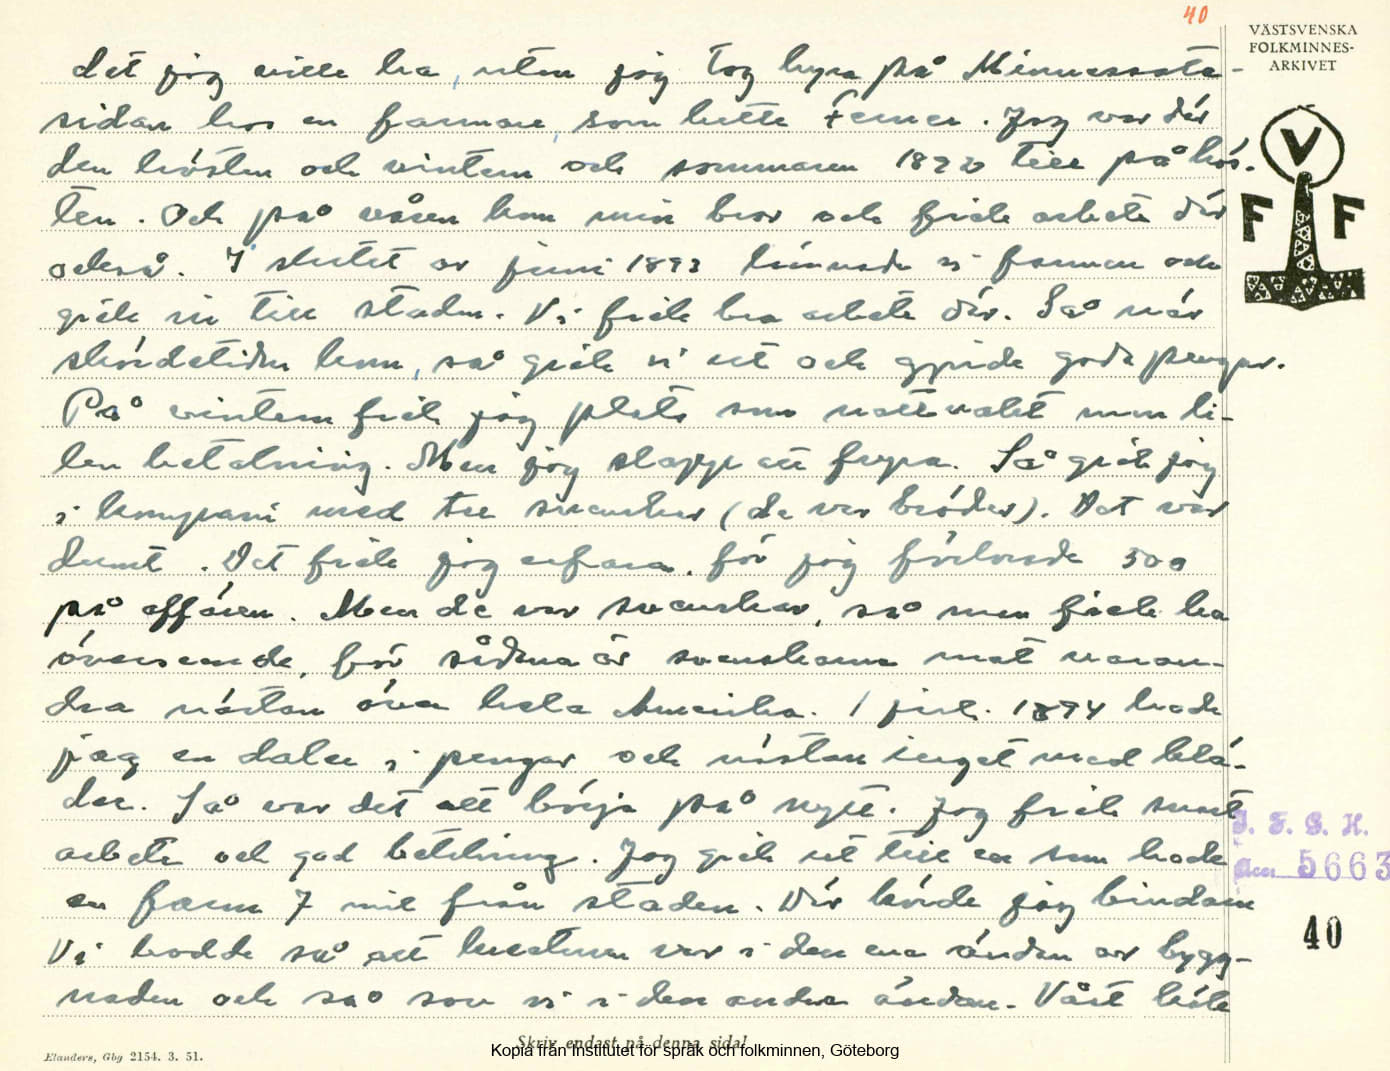 40
VÄSTSVENSKA
FOLKMINNES-
ARKIVET
det jag ville ha, uten jag tog hyra på Minnessota-
sidan hos en farmare, som hette Ferner. Jag var där
den hösten och vintern och sommaren 1892 till på hös-
ten. Och på våren kom min bror och fick arbete där
också. I slutet av juni 1893 lämnade vi farmen och
gick in till staden. Vi fick bra arbete där. Så när
skördetiden kom, så gick vi ut och gjorde goda pengar.
På vintern fick jag plats som nattvakt men li-
ten betalning. Men jag slapp att frysa. Så gick jag
i kompani med tre svenskar (de var bröder). Det var
dumt. Det fick jag erfara, för jag förlorade 500
på affären. Men de var svenskar, så man fick ha
överseende, för sådana är svenskarna mot varan-
dra nästan över hela Amerika. 1 juli 1894 hade
jag en daler i pengar och nästan inget med klä-
der. Så var det att börja på nytt. Jag fick snart
arbete och god betalning. Jag gick ut till en som hade
en farm 7 mil från staden. Där körde jag bindarn
Vi bodde så att hästarna var i den ena ändan av bygg-
naden och så sov vi i den andra ändan. Vårt kök
V
F F
I. F. G. H.
Acc. 5663
40
Skriv endast på denna sida!
Kopia från Institutet för språk och folkminnen, Göteborg
Elanders, Gbg 2154. 3. 51.